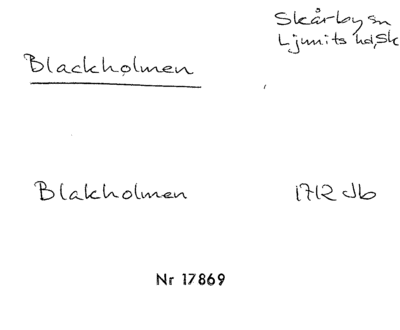 Skårby sn
Ljunits hd, Sk
Blackholmen
Blakholmen 1712 Jb
Nr 17869